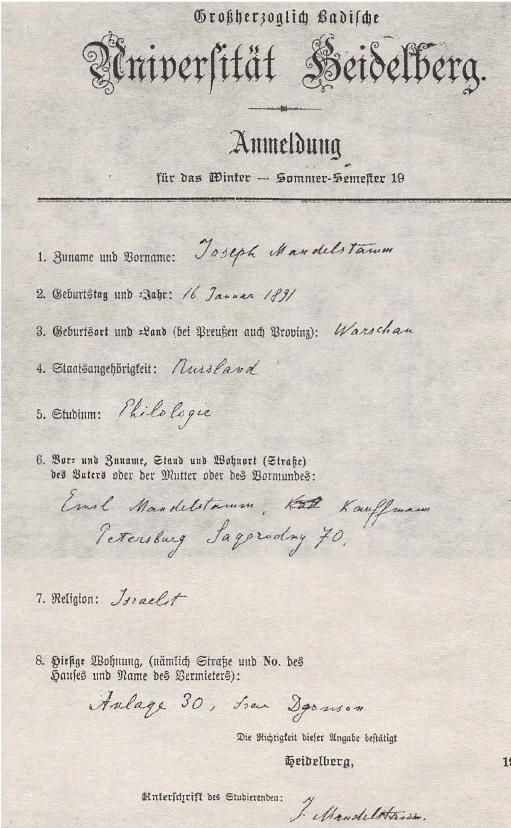 Großherzoglich Badische
Universität Heidelberg.
Anmeldung
für das Winter — Sommer-Semester 19
1. Zuname und Vorname: Joseph Mandelstamm
2. Geburtstag und =Jahr: 16 Januar 1891
3. Geburtsort und =Land (bei Preußen auch Provinz): Warschau
4. Staatsangehörigkeit: Russland
5. Studium: Philologie
6. Vor= und Zuname, Stand und Wohnort (Straße)
des Vaters oder der Mutter oder des Vormundes:
Emil Mandelstamm, Kauffmann
Petersburg Sagorodny 70.
7. Religion: Israelit
8. Hiesige Wohnung, (nämlich Straße und No. des
Hauses und Name des Vermieters):
Anlage 30, Frau
Die Richtigkeit dieser Angabe bestätigt
Heidelberg, 19
Unterschrift des Studierenden: J. Mandelstamm.